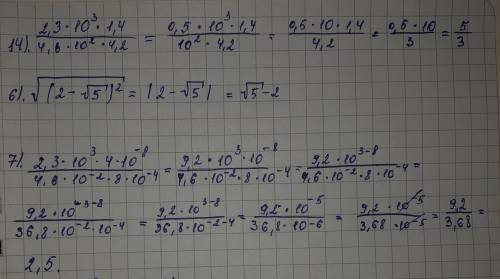 14). (2,3·10³·1,4)/(4,6·10²·4,2) = (0,5·10³·1,4)/(10²·4,2) = (0,5·10·1,4)/4,2 = (0,5·10)/3 = 5/3
6). √((2-√5)²) = |2-√5| = √5-2
7). (2,3·10³·4·10⁻⁸)/(4,6·10⁻²·8·10⁻⁴) = (9,2·10³·10⁻⁸)/(4,6·10⁻²·8·10⁻⁴) = (9,2·10³⁻⁸)/(4,6·10⁻²·8·10⁻⁴) =
(9,2·10³⁻⁸)/(36,8·10⁻²·10⁻⁴) = (9,2·10³⁻⁸)/(36,8·10⁻²⁻⁴) = (9,2·10⁻⁵)/(36,8·10-6) = (9,2·10⁻⁵)/(3,68·10⁻⁵) = 9,2/3,68 =
2,5.